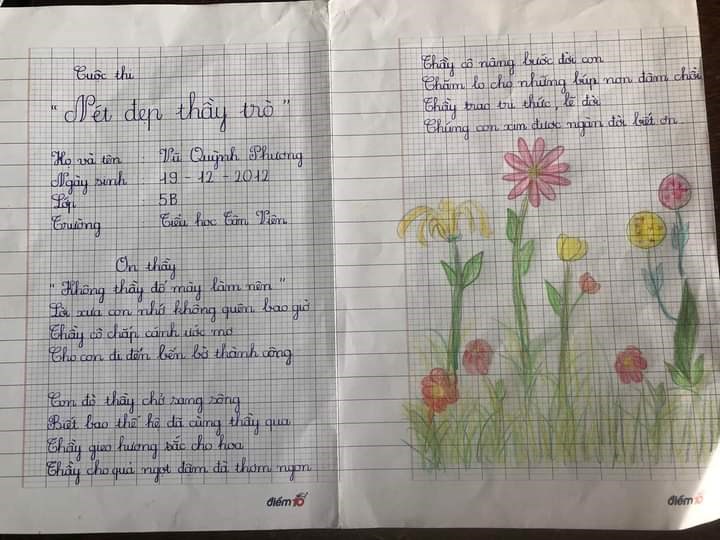 Cuộc thi
"Nét đẹp thầy trò"
Họ và tên : Vũ Quỳnh Phương
Ngày sinh : 19 - 12 - 2012
Lớp : 5B
Trường : Tiểu học Tâm Viên
Ơn thầy
"Không thầy đố mày làm nên"
Lời xưa con nhớ không quên bao giờ
Thầy cô chắp cánh ước mơ
Cho con đi đến bến bờ thành công
Con đò thầy chở sang sông
Biết bao thế hệ đã cùng thầy qua
Thầy gieo hương sắc cho hoa
Thầy cho quả ngọt đậm đà thơm ngon
điểm 10
Thầy cô nâng bước đời con
Chăm lo cho những búp non đâm chồi
Thầy trao tri thức, lẽ đời
Chúng con xin được ngàn đời biết ơn.
điểm 10